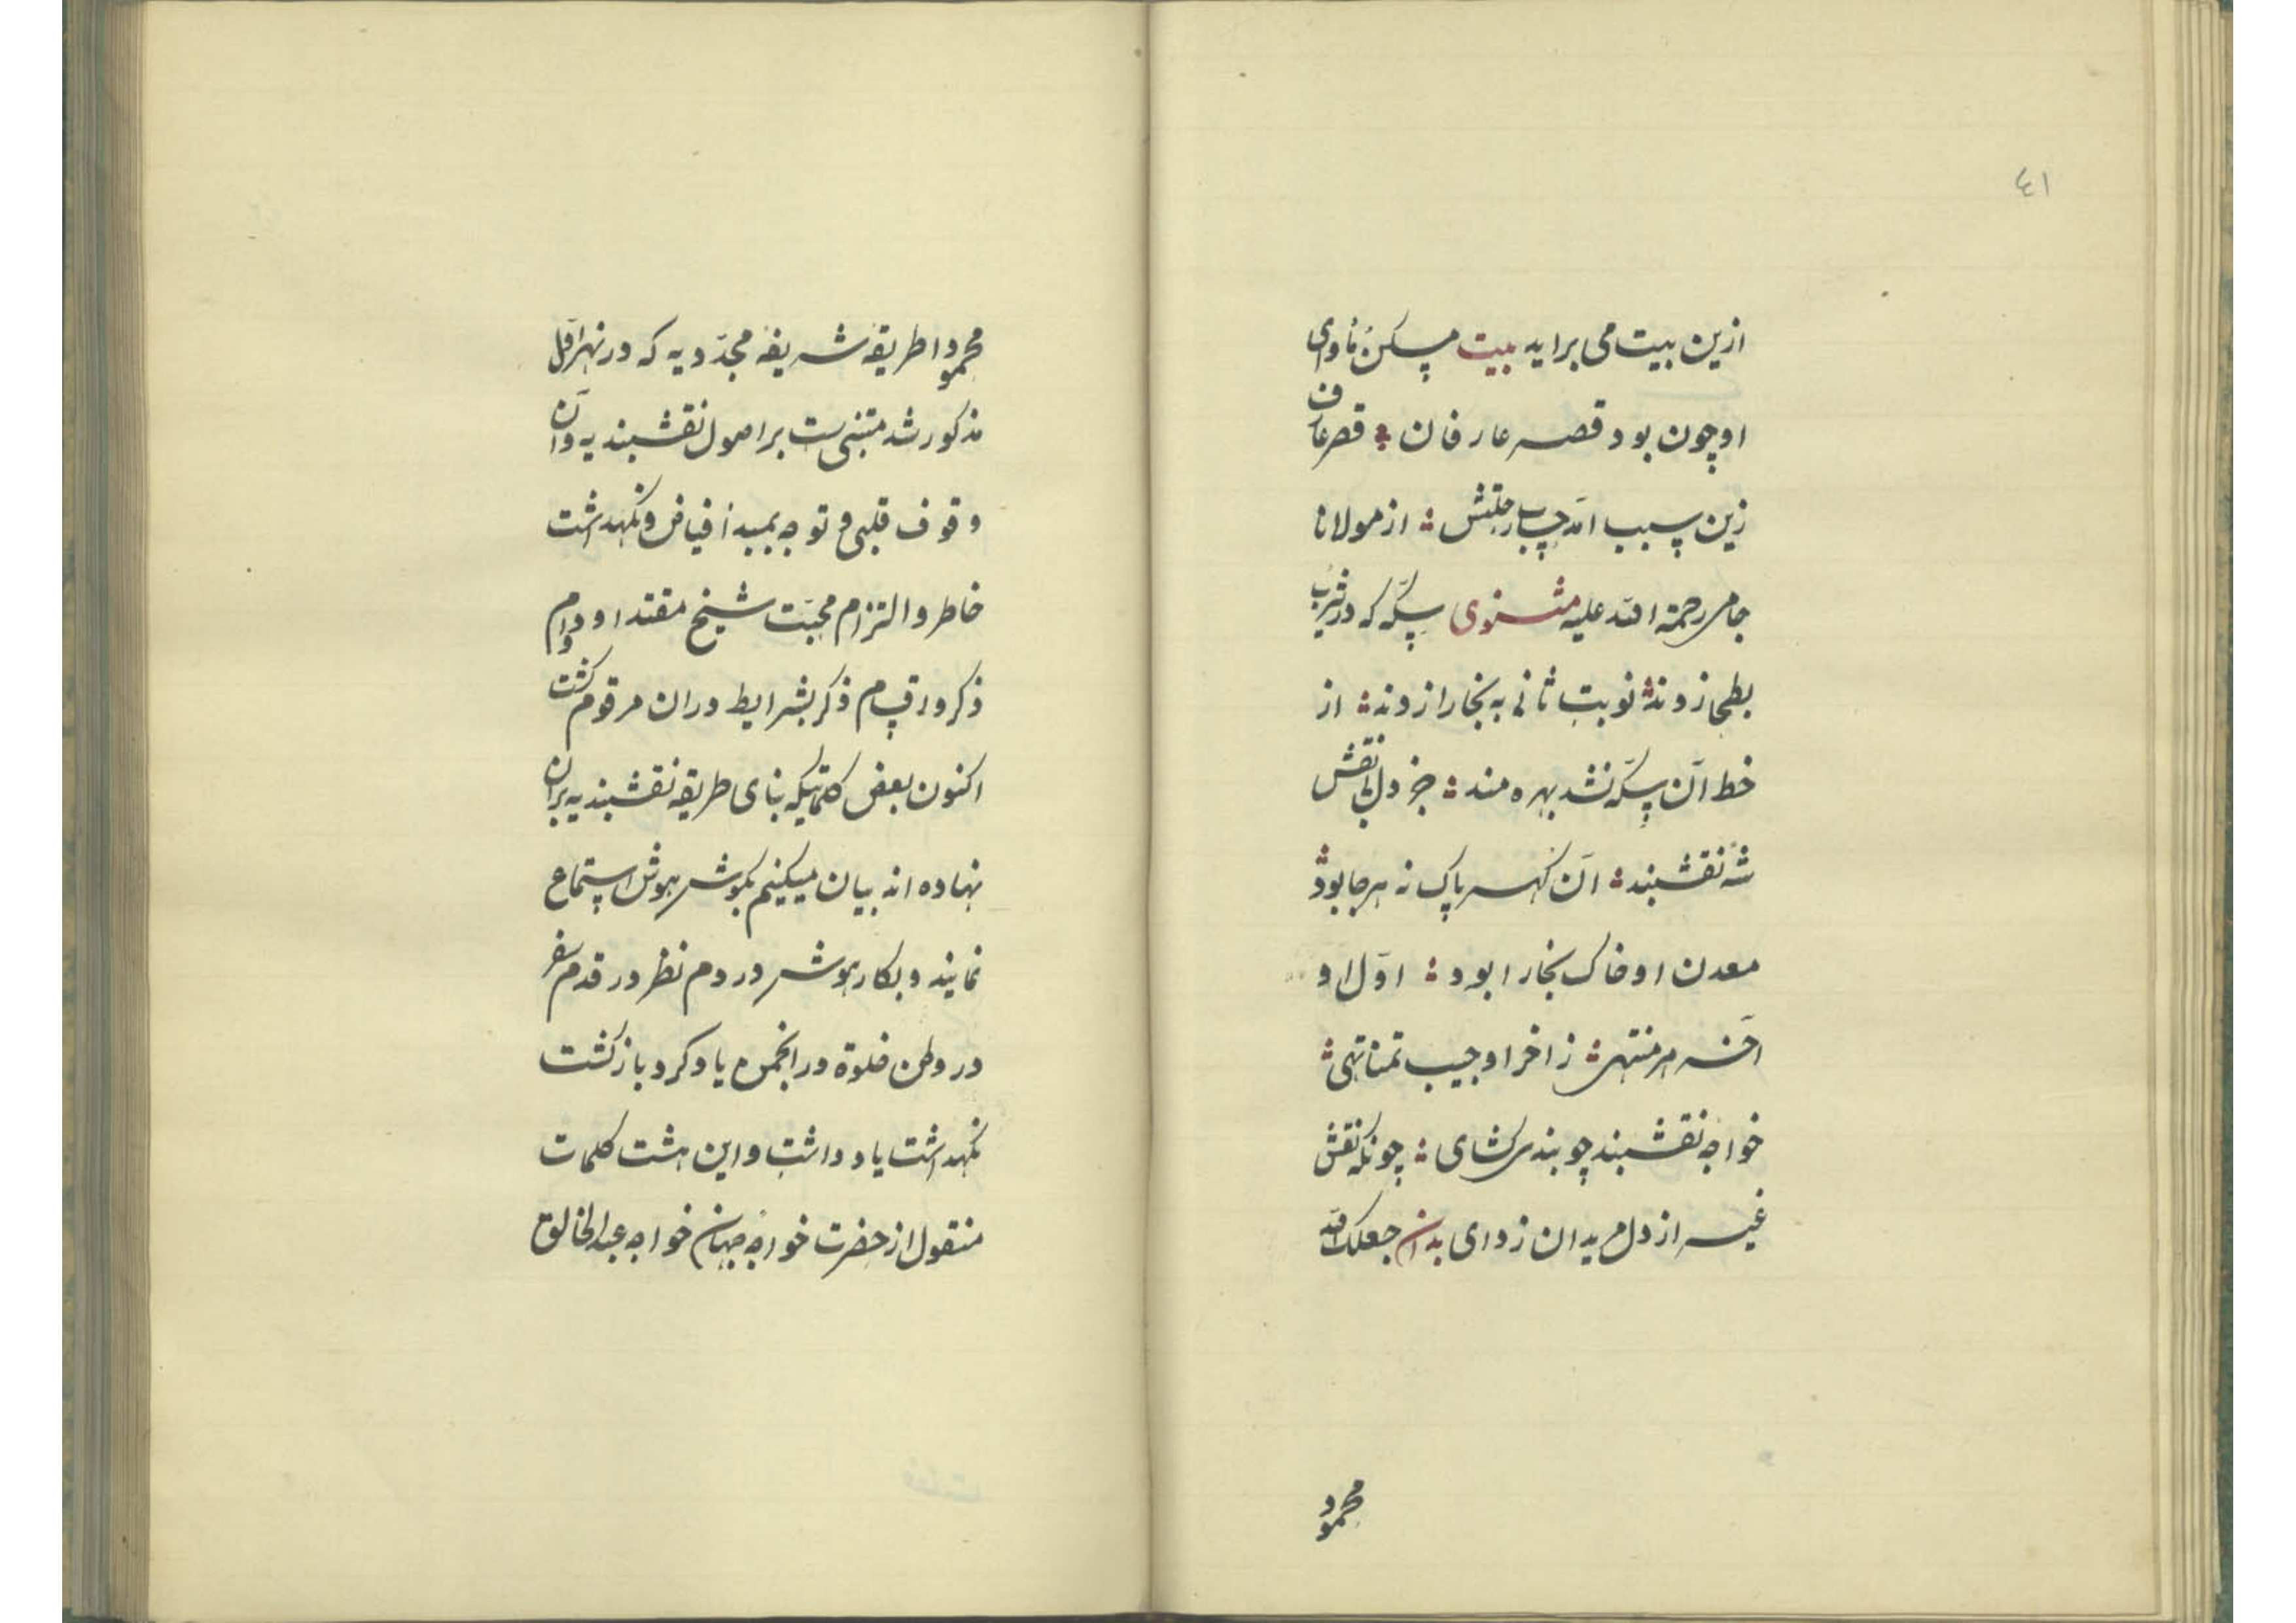 ٤١
ازین بیت می براید بیت مسکن ماوای
او چون بود قصر عارفان ؞ قصر عارف
زین سبب آمد جنتش ؞ از مولانا
جامی رحمة الله علیه مثنوی سکّه که در یثرب
بطحا زدند ؞ نوبت ثانی به بخارا زدند ؞ از
خط آن سکّه نشد بهره مند ؞ جز دل بی نقش
شه نقشبند ؞ آن گهر پاک نه هر جا بود ؞
معدن او خاک بخارا بود ؞ اوّل او
آخر هر منتهی ؞ ز آخر او جیب تمنا تهی ؞
خواجه نقشبند چو بند کشای ؞ چونکه نقش
غیر از دل مریدان زدای بدان جعلک الله
محمود
محمودا طریقه شریفه مجدّدیه که در نهر اوّل
مذکور شد متبنی ست بر اصول نقشبندیه و آن
وقوف قلبی و توجه بمبدأ فیاض و نگهداشت
خاطر و التزام محبّت شیخ مقتدا و دوام
ذکر و اقسام ذکر بشرایط دران مرقوم کشت
اکنون بعض کلماتیکه بنای طریقه نقشبندیه بران
نهاده اند بیان میکنیم بگوش هوش استماع
نمایند و بکار هوش در دم نظر در قدم سفر
در وطن خلوة در انجمن یاد کرد باز کشت
نگهداشت یاد داشت و این هشت کلمات
منقول از حضرت خواجه جهان خواجه عبد الخالق